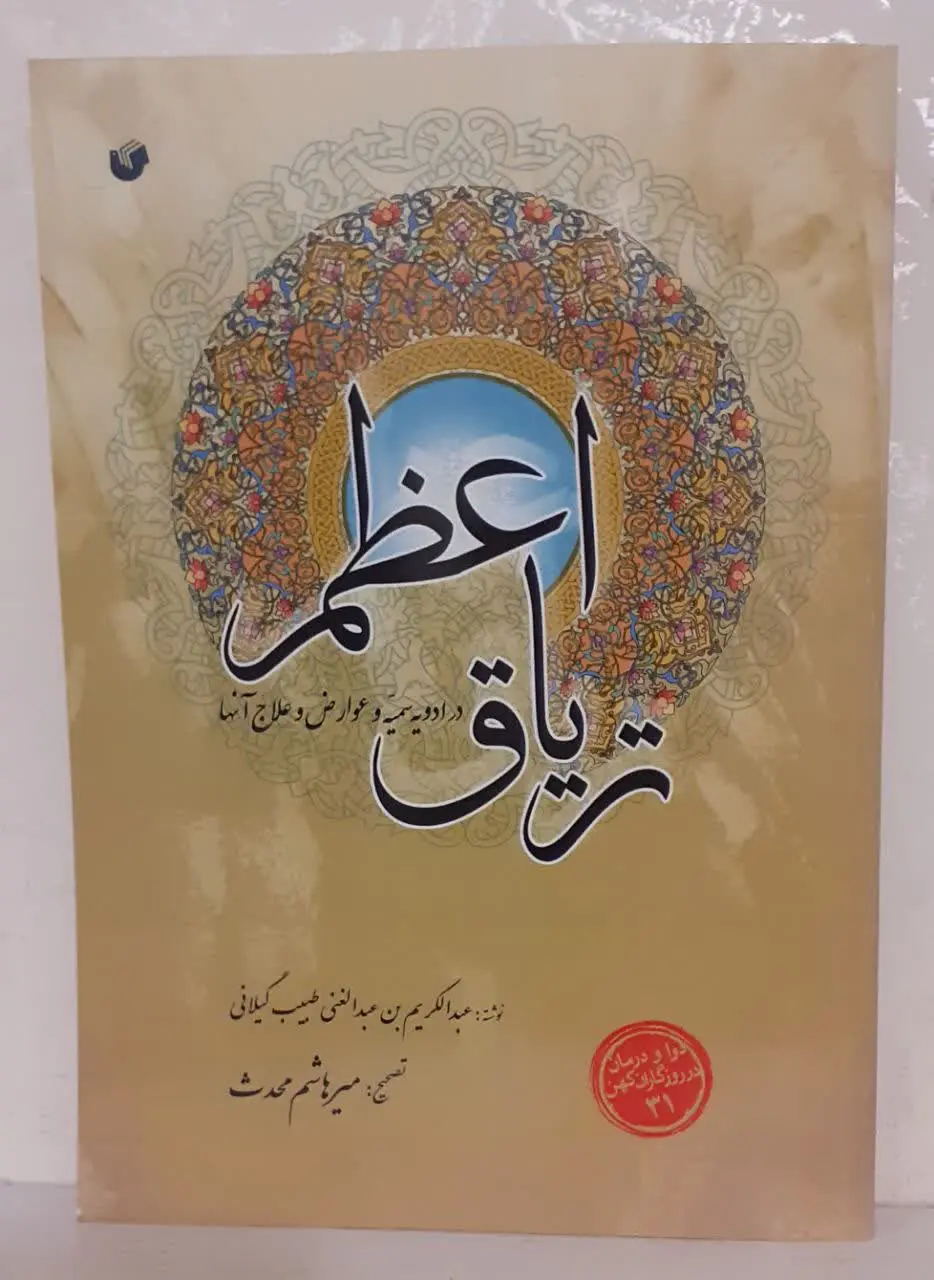 تریاق اعظم
در ادویه سمیّه و عوارض و علاج آنها
نوشته: عبدالکریم بن عبدالغنی طبیب گیلانی
تصحیح: میرهاشم محدث
دوا و درمان
در روزگاران کهن
۳۱